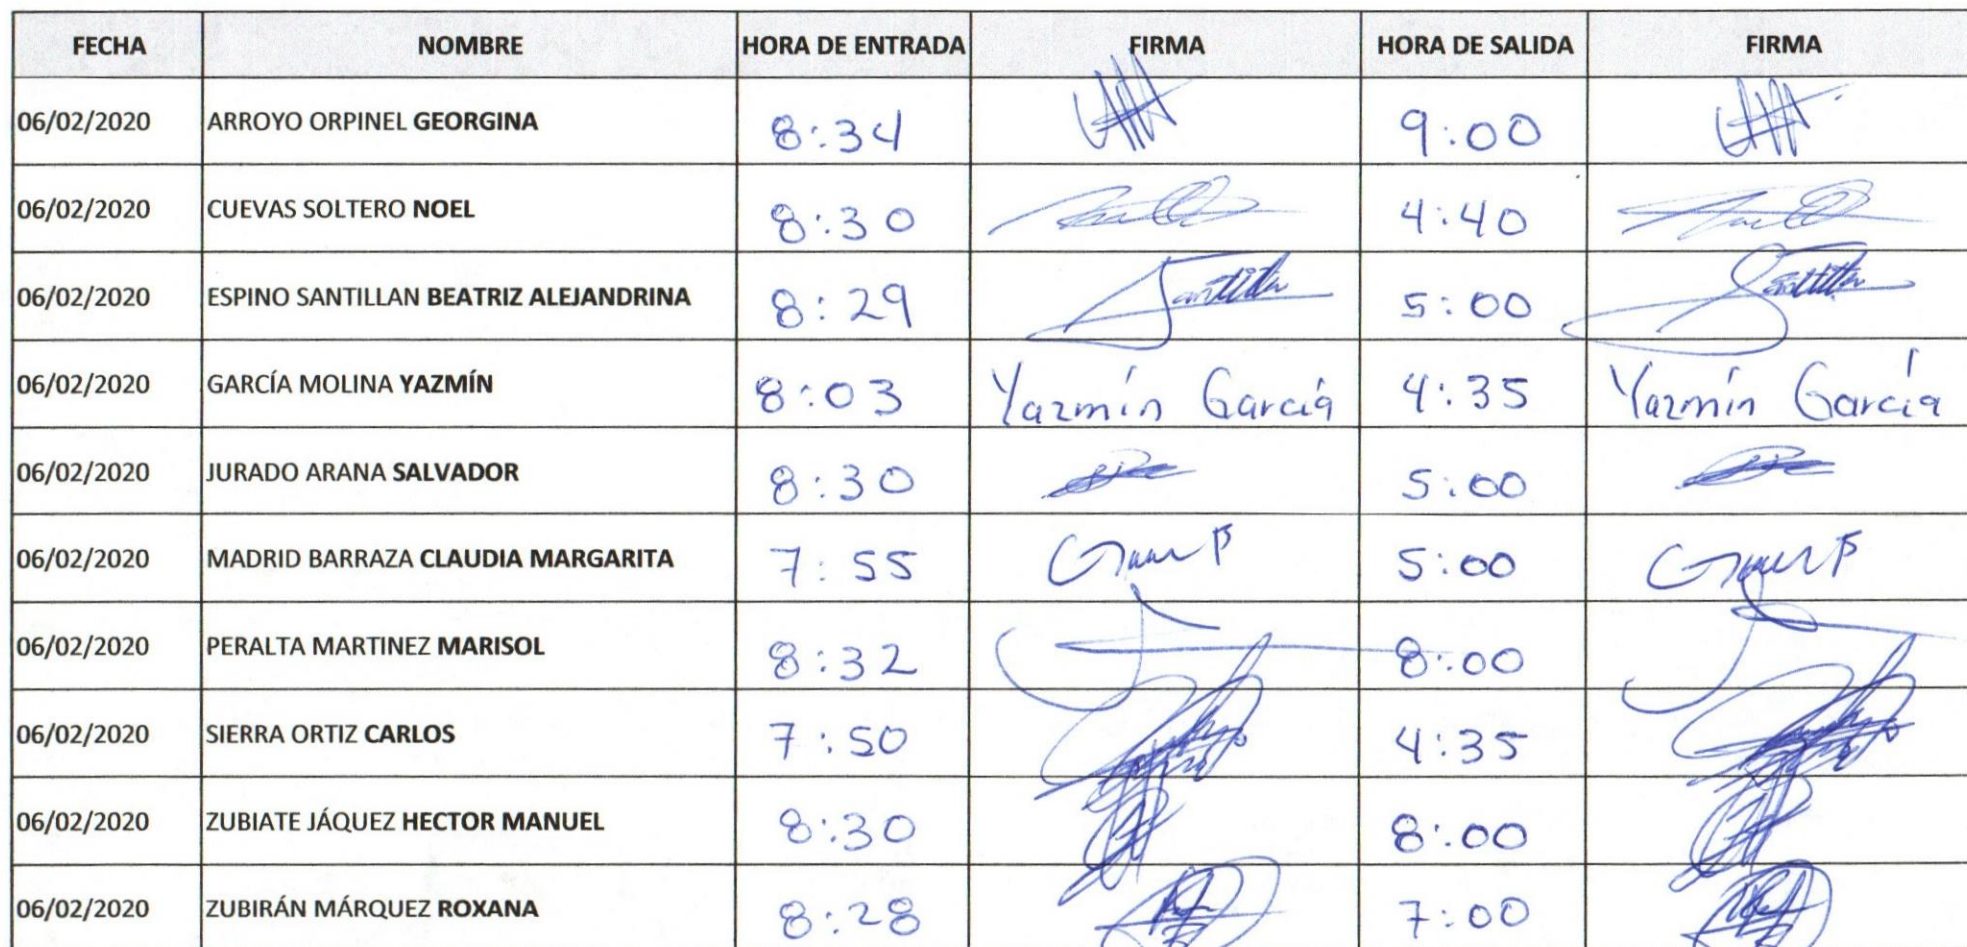 FECHA NOMBRE HORA DE ENTRADA FIRMA HORA DE SALIDA FIRMA
06/02/2020 ARROYO ORPINEL GEORGINA 8:34 9:00
06/02/2020 CUEVAS SOLTERO NOEL 8:30 4:40
06/02/2020 ESPINO SANTILLAN BEATRIZ ALEJANDRINA 8:29 5:00
06/02/2020 GARCÍA MOLINA YAZMÍN 8:03 Yazmín García 4:35 Yazmín García
06/02/2020 JURADO ARANA SALVADOR 8:30 5:00
06/02/2020 MADRID BARRAZA CLAUDIA MARGARITA 7:55 5:00
06/02/2020 PERALTA MARTINEZ MARISOL 8:32 8:00
06/02/2020 SIERRA ORTIZ CARLOS 7:50 4:35
06/02/2020 ZUBIATE JÁQUEZ HECTOR MANUEL 8:30 8:00
06/02/2020 ZUBIRÁN MÁRQUEZ ROXANA 8:28 7:00